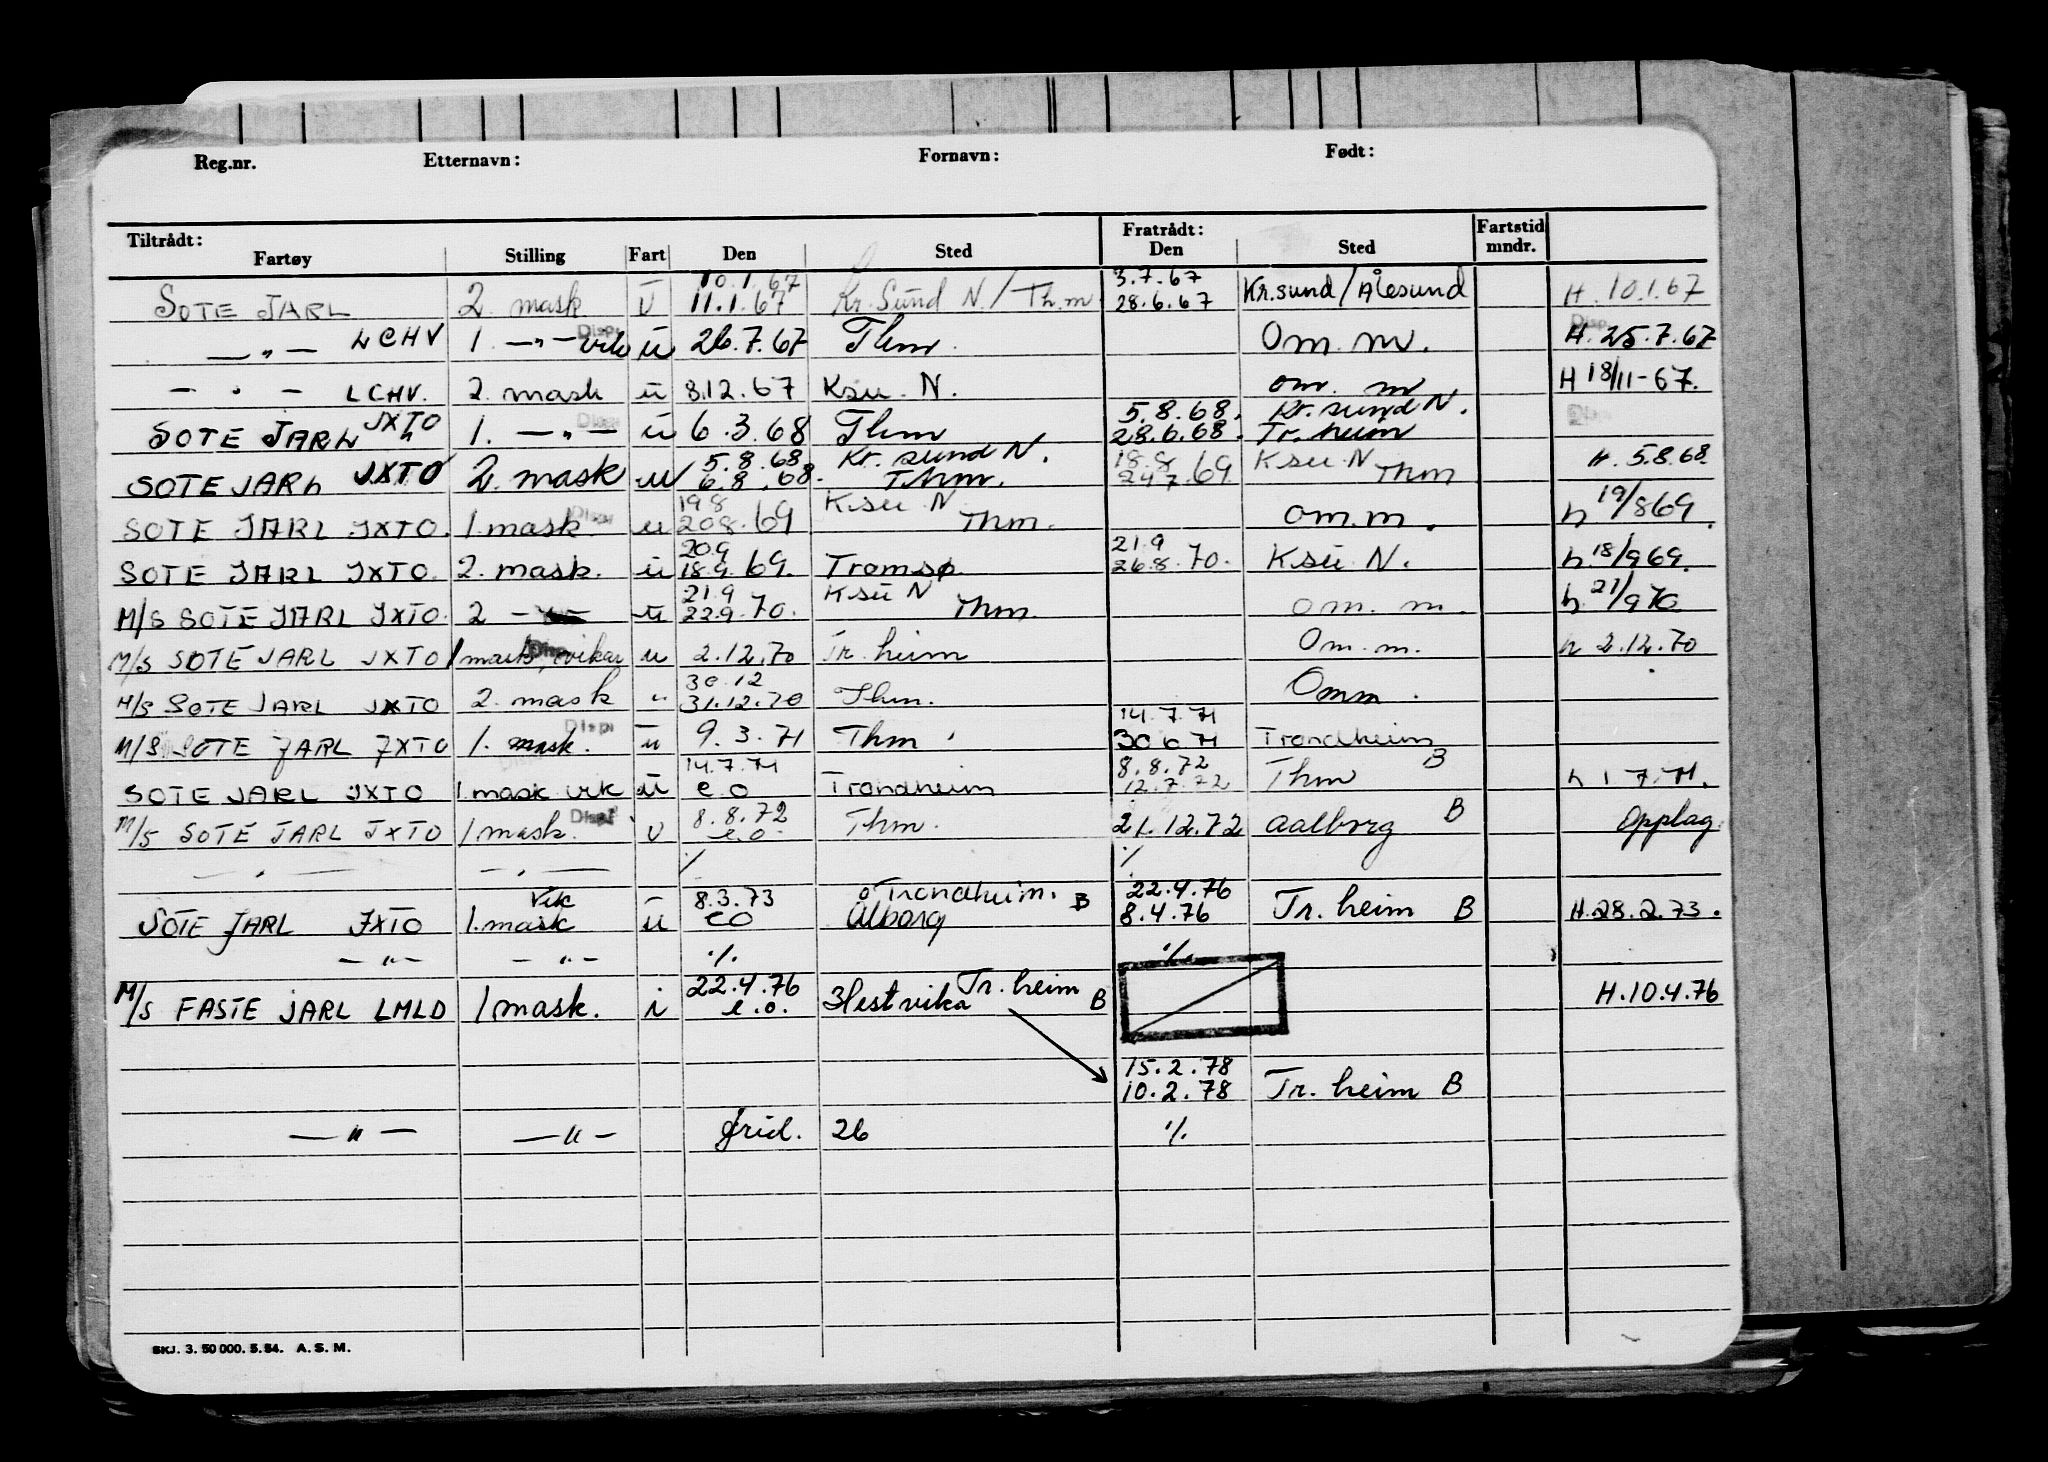 Reg.nr. Etternavn: Fornavn: Født:
Tiltrådt: Fratrådt: Fartstid
Fartøy Stilling Fart Den Sted Den Sted mndr.
10.1.67 3.7.67
SOTE JARL 2. mask u 11.1.67 Kr. Sund N / Th.m 28.6.67 Kr.sund / Ålesund H. 10.1.67
Disp Disp
— " — LCHV 1. — " — vik u 26.7.67 Thm. Om. m. H. 25.7.67
— " — LCHV. 2. mask u 8.12.67 Ksu. N. om. m H 18/11-67.
5.8.68. Kr. sund N.
SOTE JARL JXTO 1. — " — Disp u 6.3.68 Thm 28.6.68. Tr. heim
5.8.68 Kr. sund N. 18.8 Ksu N
SOTE JARL JXTO 2. mask u 6.8.68. Thm. 24.7.69. Thm H. 5.8.68.
19.8 Ksu N
SOTE JARL JXTO. 1. mask. Disp u 20.8.69 Thm. om.m. h 19/8 69.
20.9 21.9
SOTE JARL JXTO. 2. mask. u 18.9.69. Tromsø. 26.8.70. Ksu. N. h. 18/9 69.
21.9 Ksu N
M/S SOTE JARL JXTO. 2 — " — u 22.9.70. Thm. om. m. h. 21/9 70
M/S SOTE JARL JXTO 1 mask vikar u 2.12.70 Tr. heim Om. m. h 2.12.70
30.12
M/S SOTE JARL JXTO 2. mask " 31.12.70 Thm. Omm.
14.7.71
M/S SOTE JARL JXTO 1. mask. Disp u 9.3.71 Thm. 30.6.71 Trondheim
14.7.71 8.8.72 B
SOTE JARL JXTO 1. mask vik u e.o Trondheim 12.7.72 Thm h 1.7.71.
8.8.72
M/S SOTE JARL JXTO 1 mask. Disp u e.o. Thm. 21.12.72 Aalborg B Opplag.
— " — — " — ·/. ·/.
Vik 8.3.73 Trondheim. B 22.4.76
SOTE JARL JXTO 1. mask u eo Ålborg 8.4.76 Tr. heim B H.28.2.73.
— " — — " — ·/. ·/.
22.4.76 Tr. heim
M/S FASTE JARL LMLD 1 mask. i e.o. Hestvika B H.10.4.76
15.2.78
10.2.78 Tr. heim B
— " — — " — frid. 26 ·/.
SKJ. 3. 50 000. 5.54. A. S. M.